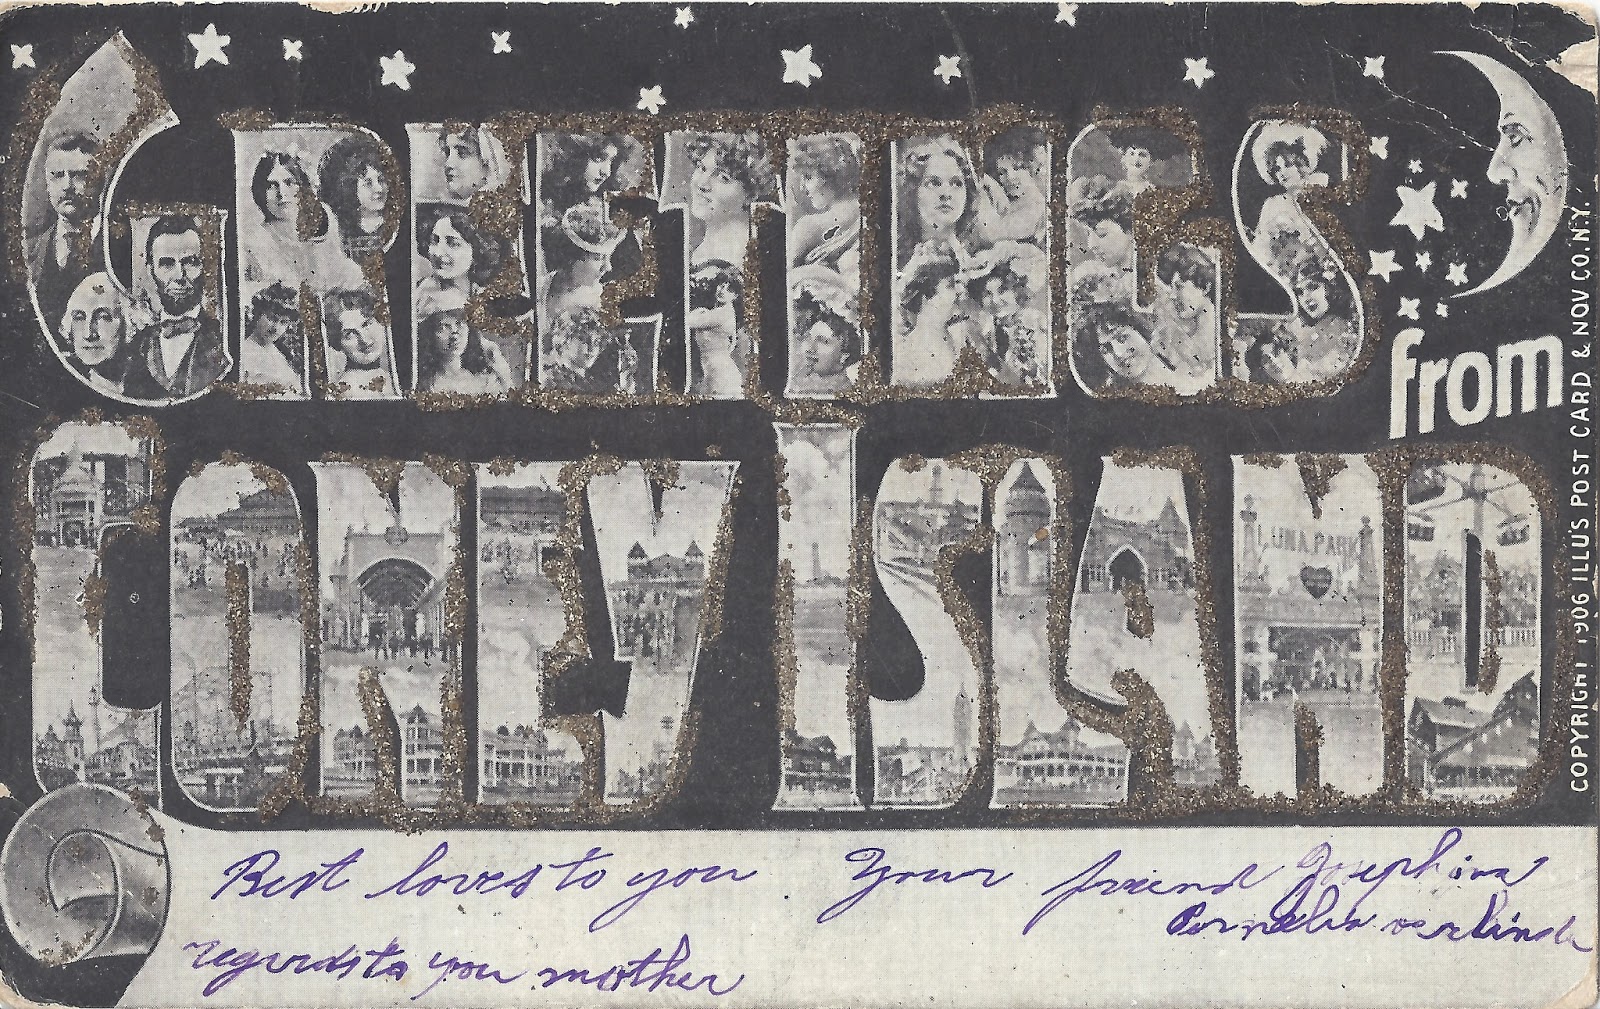 GREETINGS
from
CONEY ISLAND
LUNA PARK
COPYRIGHT 1906 ILLUS POST CARD & NOV CO. N.Y.
Best loves to you Your friend Josephina
regards to you mother